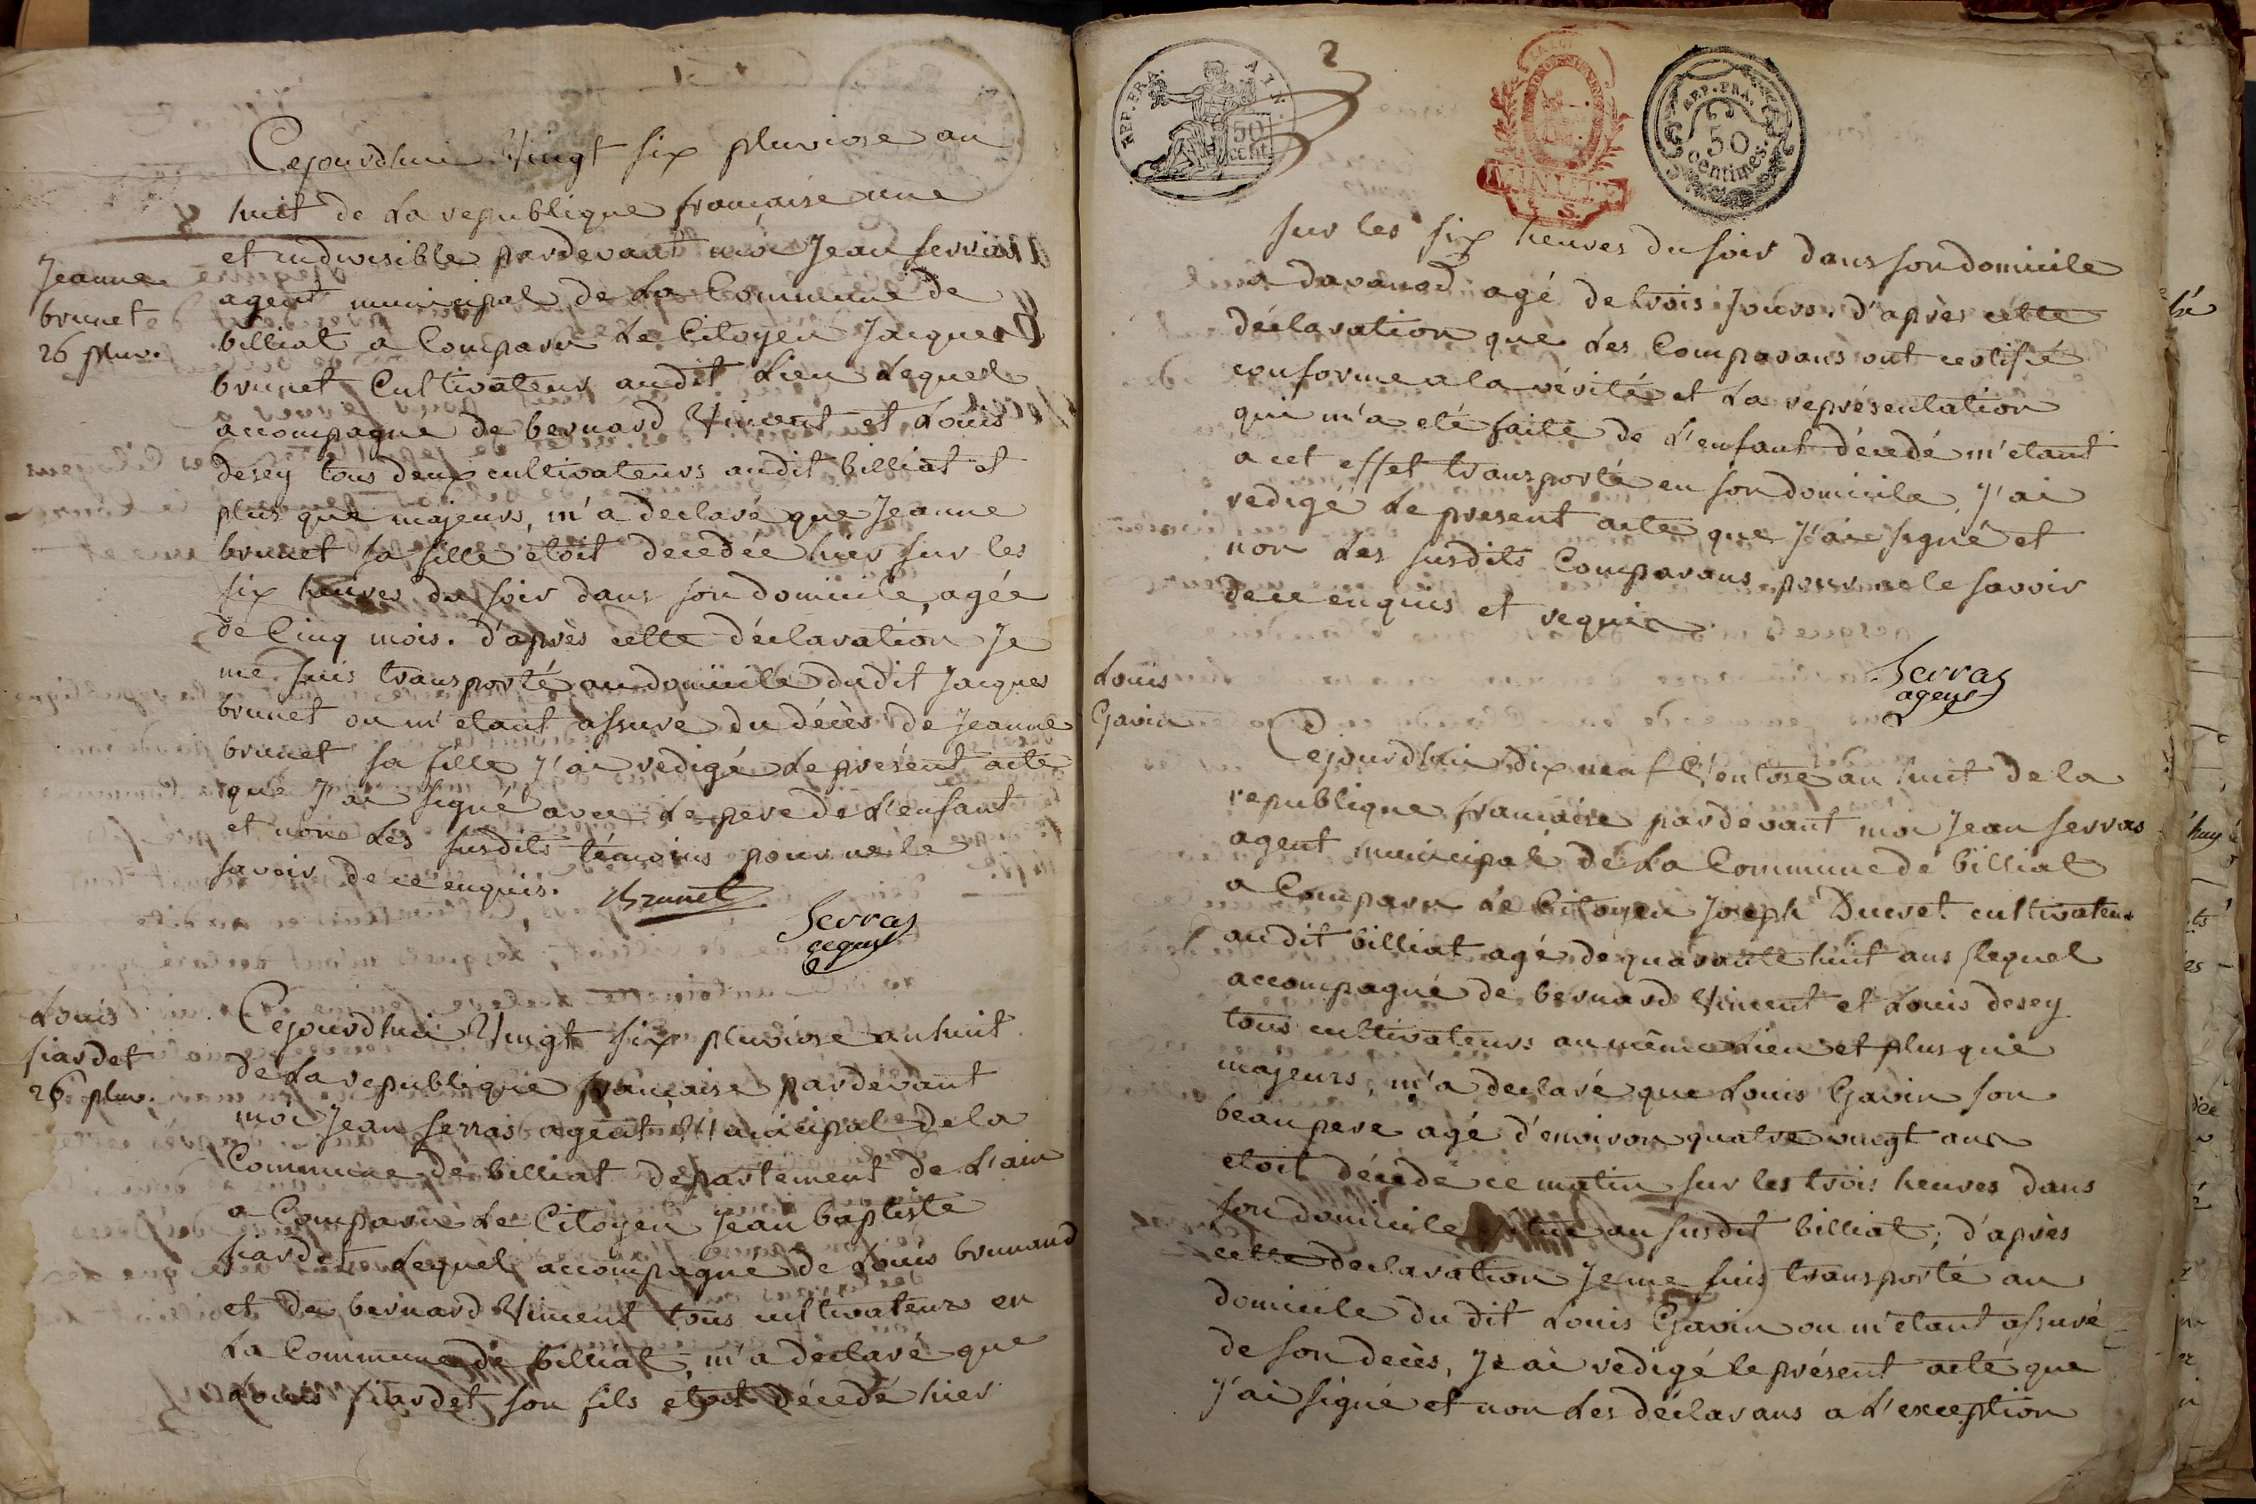 Cejourdhui Vingt six pluviose an
huit de La republique française une
et indivisible pardevant moi Jean Serras
Jeanne
brunet
26 pluv.
agent municipal de La Commune de
billiat a Comparu Le Citoyen Jacques
brunet Cultivateur audit Lieu Lequel
accompagné de bernard Vincent et Louis
desey tous deux cultivateurs audit billiat et
plus que majeurs, m'a declaré que Jeanne
brunet sa fille étoit decedée hier sur les
six heures du soir dans son domicile, agée
de Cinq mois. d'après cette déclaration Je
me suis transporté au domicile dudit Jacques
brunet ou m'etant assuré du décès de Jeanne
brunet sa fille J'ai redigé Le présent acte
que J'ai signé avec Le pere de L'enfant
et non Les susdits témoins pour ne le
savoir de ce enquis. Brunet
Serras
agent
Louis
fiardet
26 pluv.
Cejourdhui Vingt six pluviose an huit
de La republique française pardevant
moi Jean Serras agent Municipal de la
Commune de billiat département de L'ain
a Comparu Le Citoyen Jean baptiste
fiardet Lequel accompagné de Louis brunaud
et de bernard Vincent tous cultivateurs en
La Commune de billiat, m'a déclaré que
Louis fiardet son fils etoit décedé hier
2
REP. FRA.
50
cent.
MINUTE
REP. FRA.
50
centimes.
sur les six heures du soir dans son domicile
a davanod agé de trois Jours. d'après cette
déclaration que Les Comparans ont certifié
conforme a la vérité et La représentation
qui m'a eté faite de L'enfant décedé m'etant
a cet effet transporté en son domicile, J'ai
redigé Le present acte que J'ai signé et
non Les susdits Comparans pour ne le savoir
de ce enquis et requis.
Serras
agent
Louis
Gavin
Cejourdhui dix neuf Ventose an huit de la
republique française pardevant moi Jean Serras
agent municipal de La Commune de billiat
a Comparu Le Citoyen Joseph Ducret cultivateur
audit billiat agé de quarante huit ans, lequel
accompagné de bernard Vincent et Louis desey
tous cultivateurs au même Lieu et plus que
majeurs, m'a declaré que Louis Gavin son
beaupere agé d'environ quatre vingt ans
etoit décedé ce matin sur les trois heures dans
son domicile au susdit billiat; d'après
cette declaration Je me suis transporté au
domicile du dit Louis Gavin ou m'etant assuré
de son decès, Je ai redigé le présent acte que
J'ai signé et non Les déclarans a L'exception